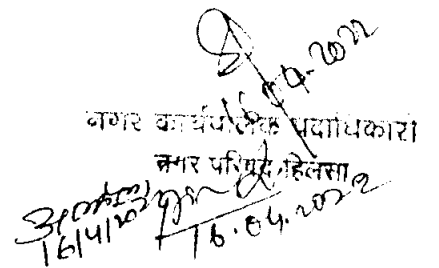 16.04.2022
नगर कार्यपालक पदाधिकारी
नगर परिषद, हिलसा
16/4/22
16.04.2022